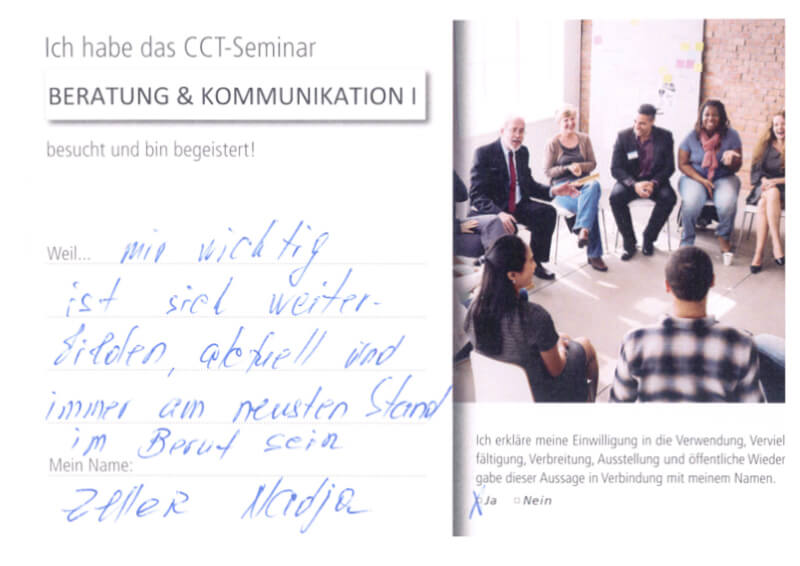 Ich habe das CCT-Seminar
BERATUNG & KOMMUNIKATION I
besucht und bin begeistert!
Weil... mir wichtig
ist sich weiter-
bilden, aktuell und
immer am neusten Stand
im Beruf sein
Mein Name:
Zeller Nadja
Ich erkläre meine Einwilligung in die Verwendung, Verviel
fältigung, Verbreitung, Ausstellung und öffentliche Wieder
gabe dieser Aussage in Verbindung mit meinem Namen.
X Ja □ Nein